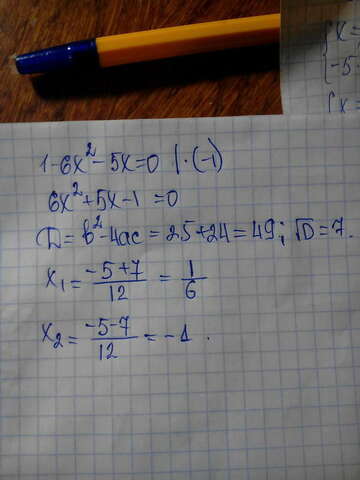 {x=
-5-
{x
1-6x²-5x=0 |·(-1)
6x²+5x-1=0
D=b²-4ac=25+24=49; √D=7.
x₁=\frac{-5+7}{12}=\frac{1}{6}
x₂=\frac{-5-7}{12}=-1.